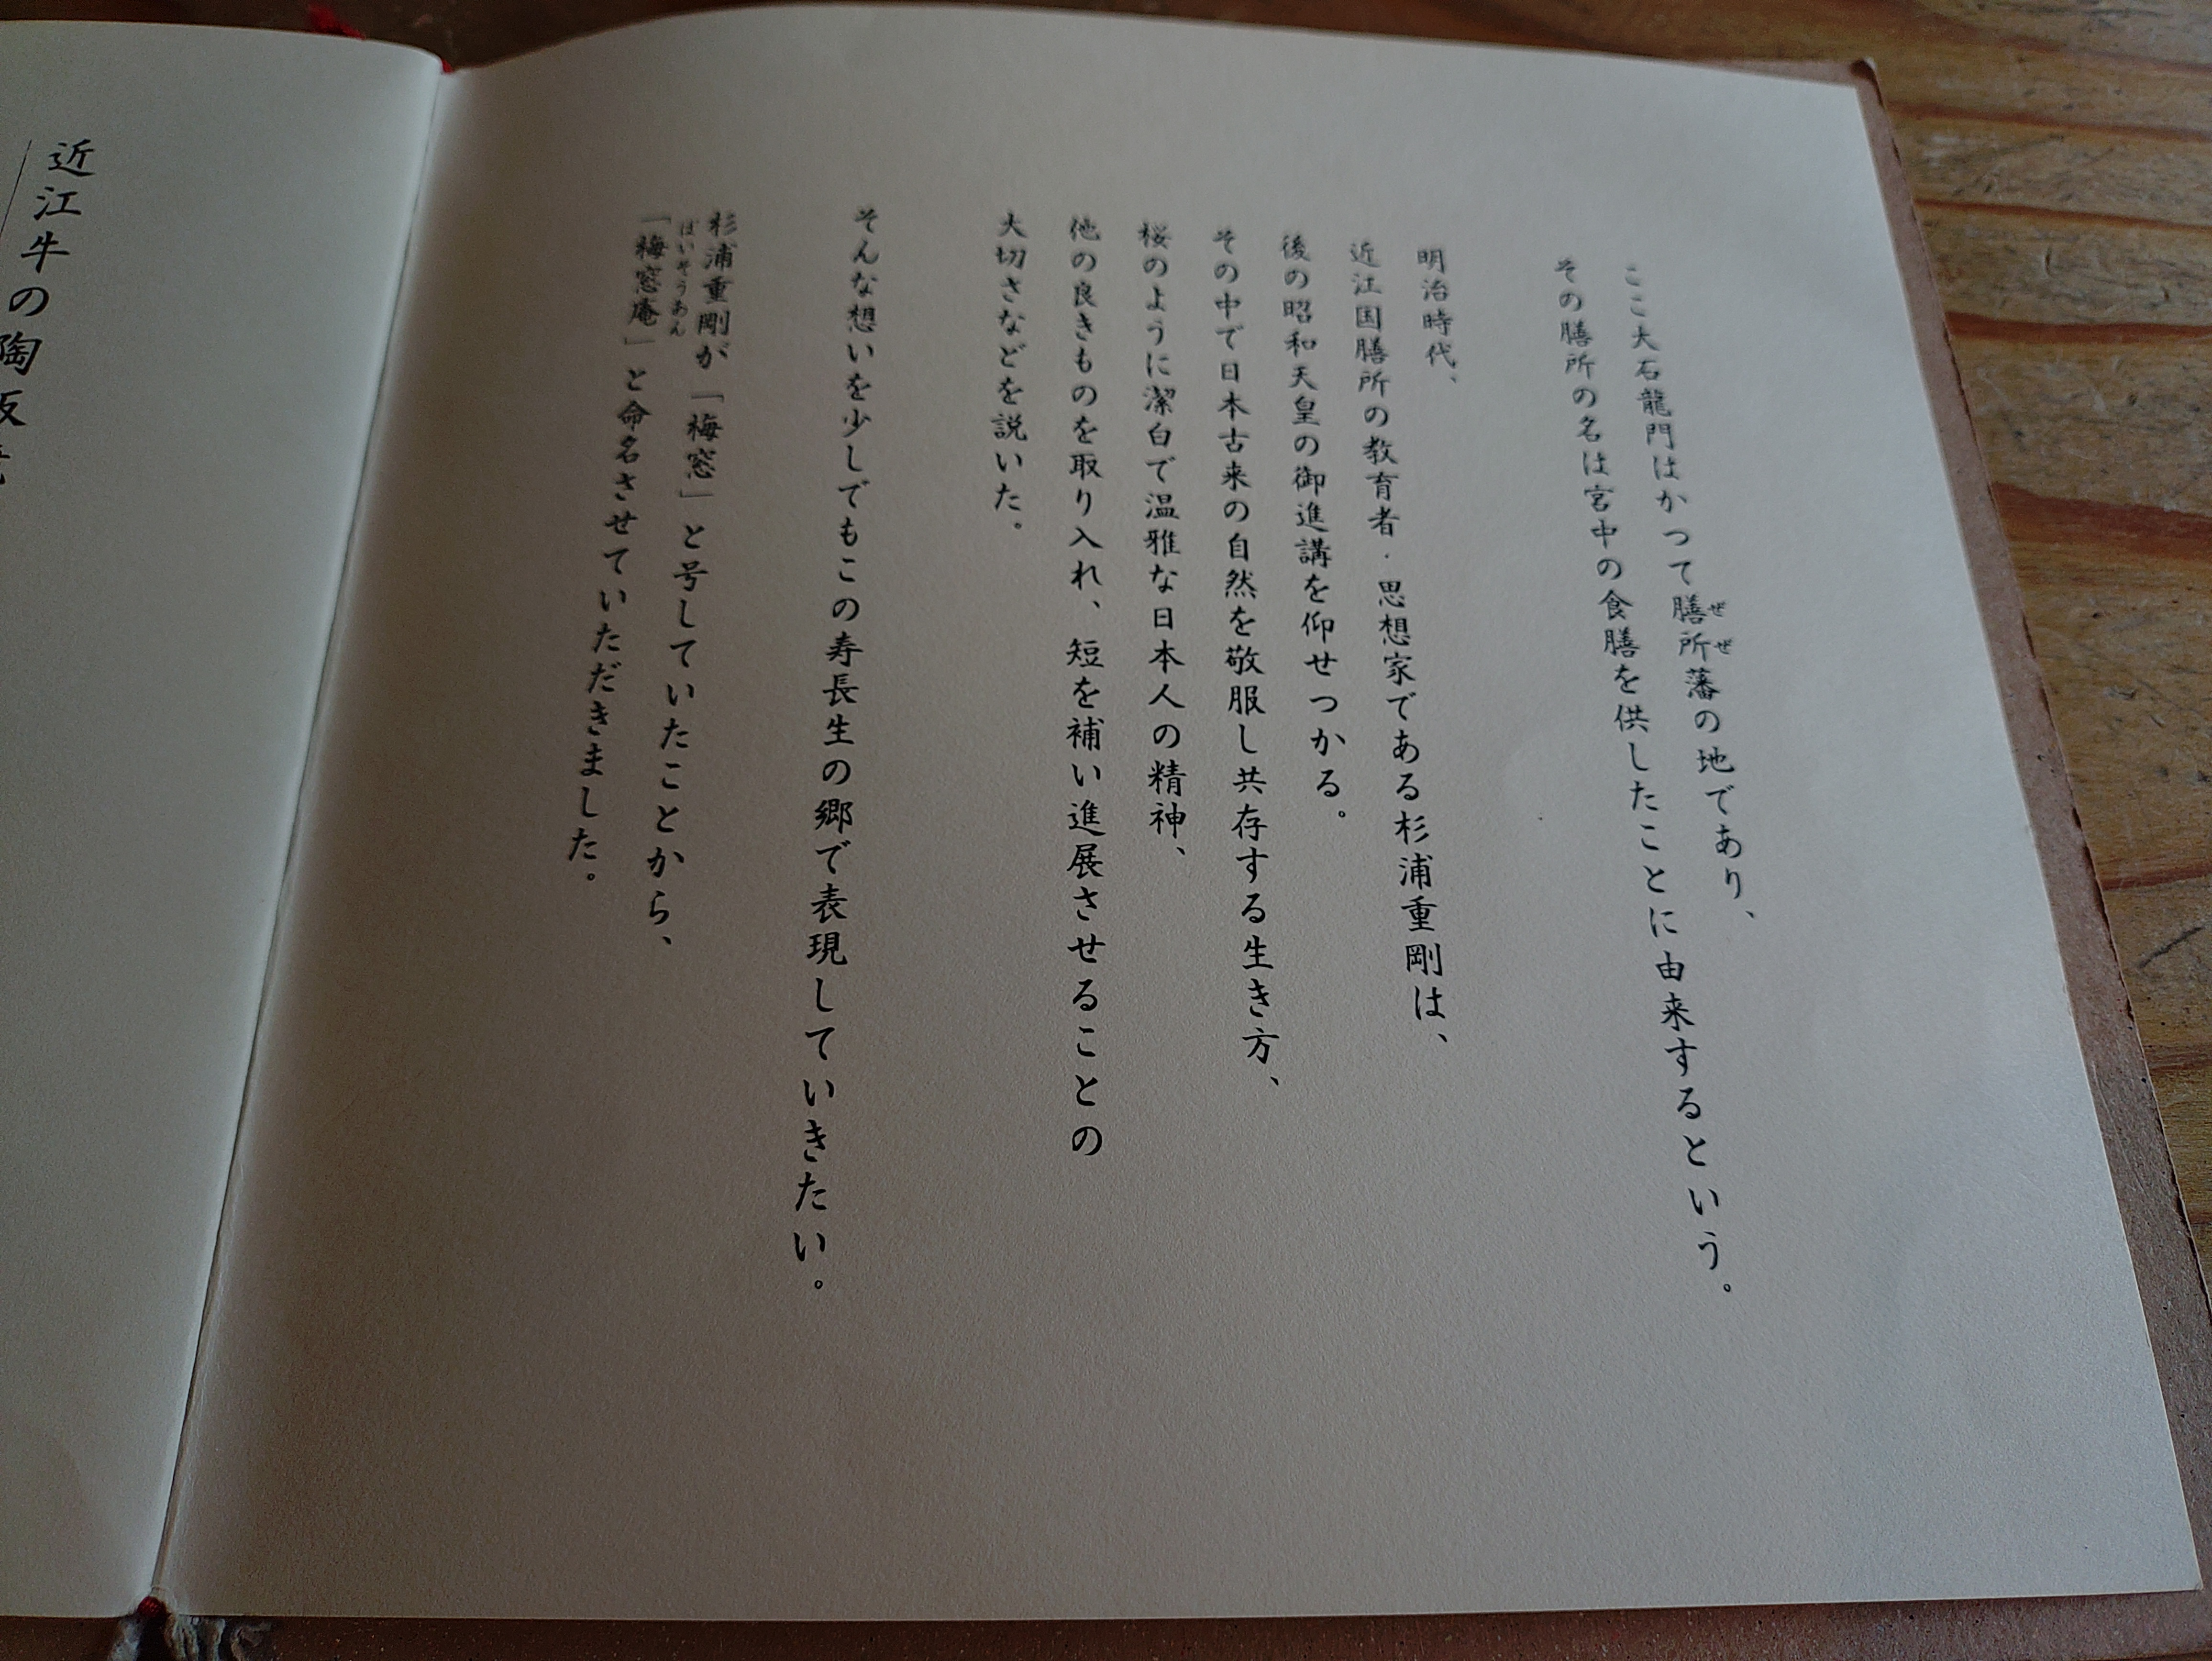 ここ大石龍門はかつて膳所藩の地であり、
ぜぜ
その膳所の名は宮中の食膳を供したことに由来するという。
明治時代、
近江国膳所の教育者・思想家である杉浦重剛は、
後の昭和天皇の御進講を仰せつかる。
その中で日本古来の自然を敬服し共存する生き方、
桜のように潔白で温雅な日本人の精神、
他の良きものを取り入れ、短を補い進展させることの
大切さなどを説いた。
そんな想いを少しでもこの寿長生の郷で表現していきたい。
杉浦重剛が「梅窓」と号していたことから、
ばいそうあん
「梅窓庵」と命名させていただきました。
近江牛の陶板